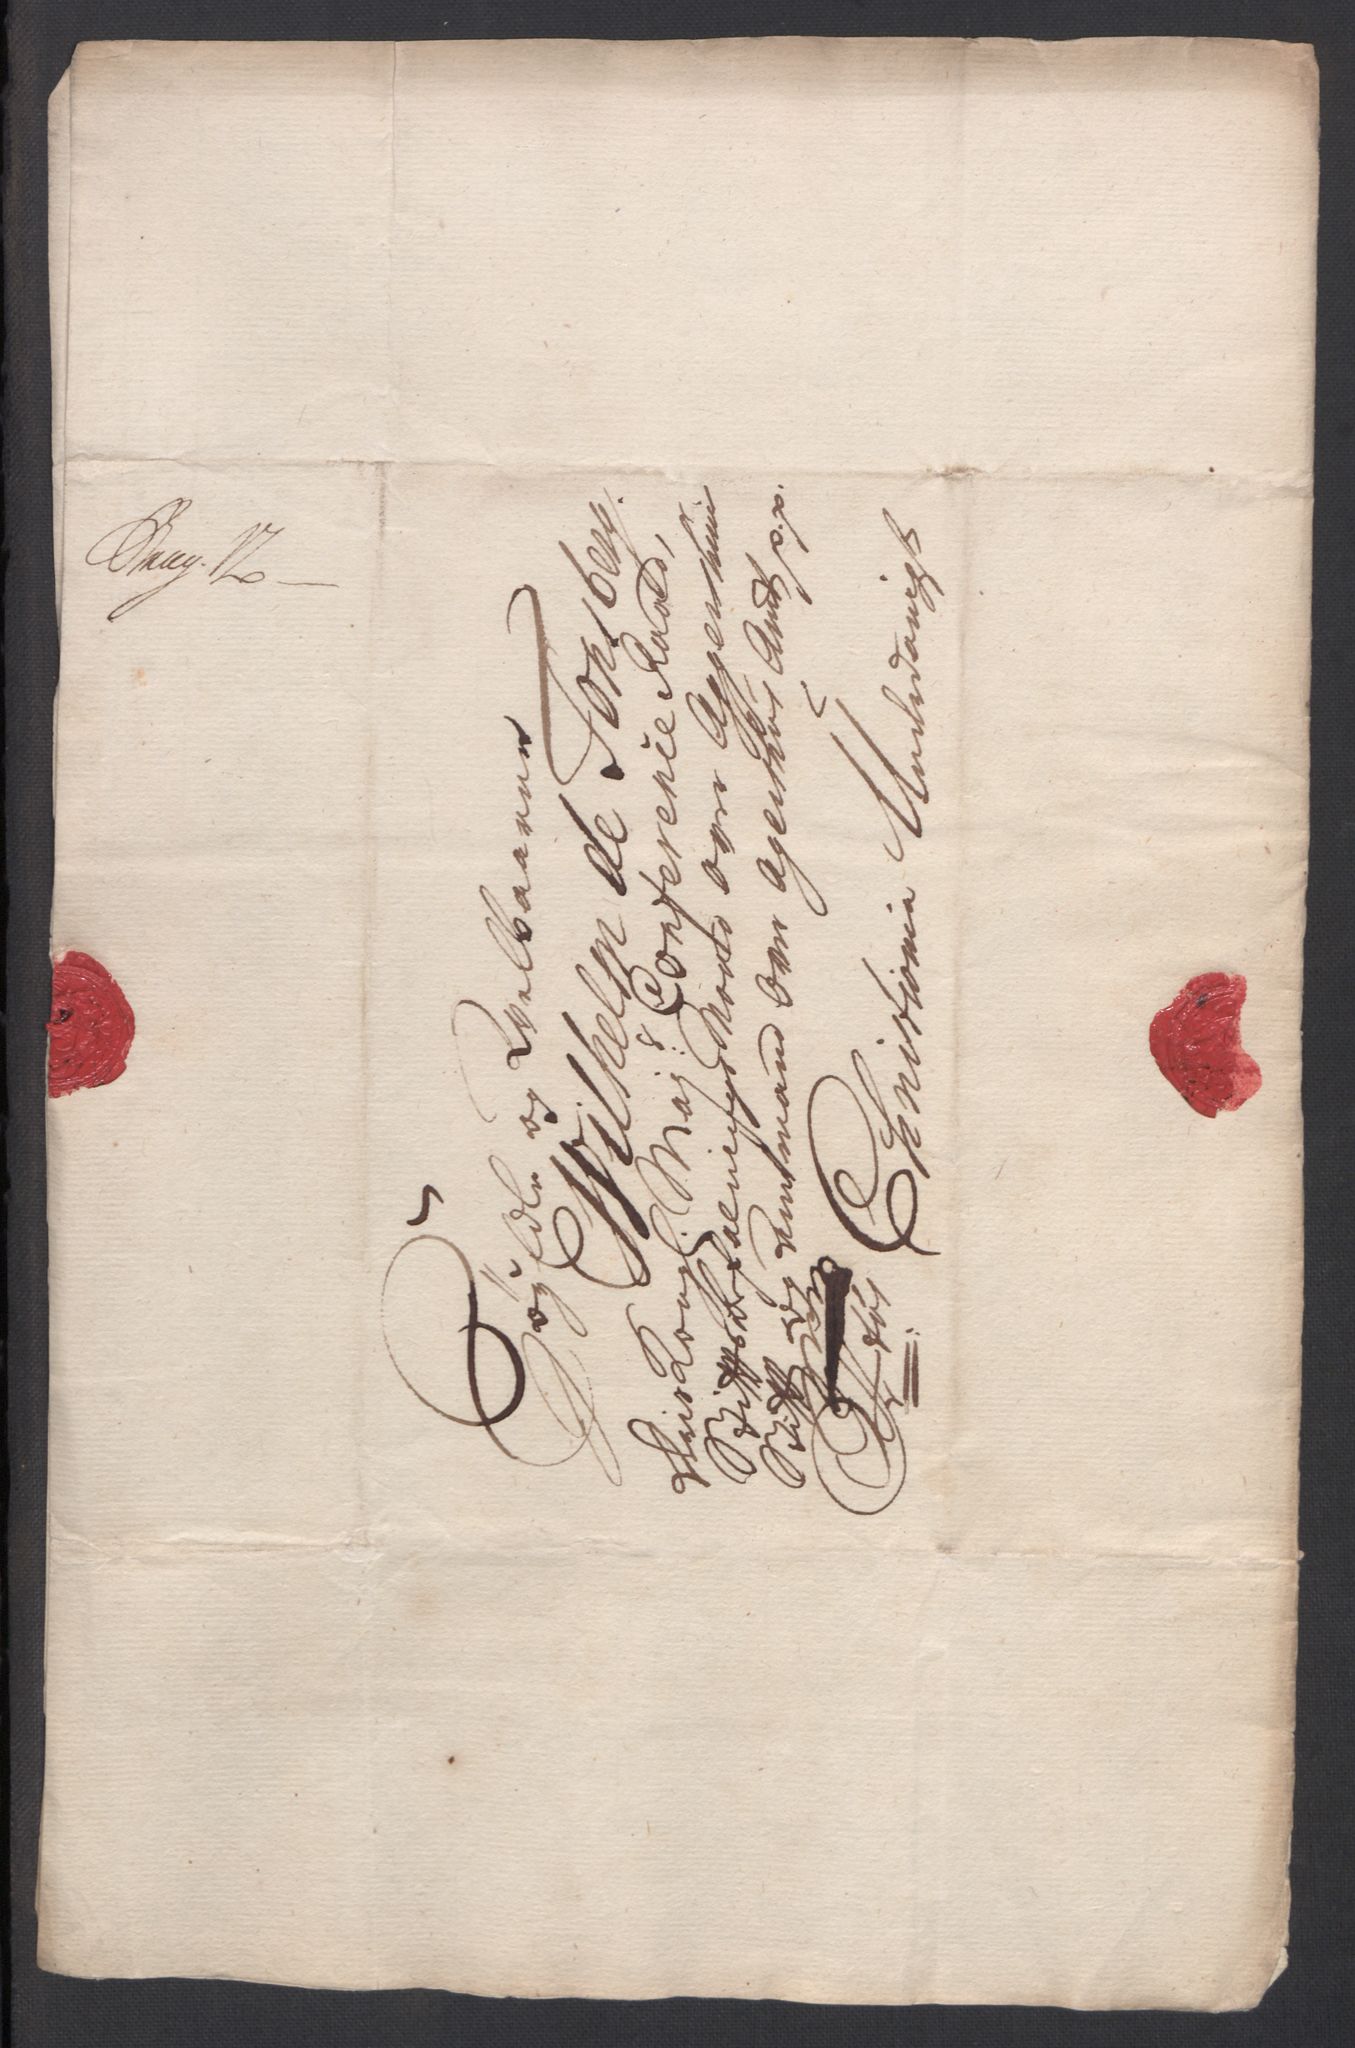 Høÿ Ædle og Velbaarne
Wilhelm de Tonsberg.
Hans Kongl. Maj: Conferentie Raad,
Stiftsbefalningsmand over Aggershuus
Stift og Amtmand over Agershuus Amt p.p.
Christiania
Underdanigst